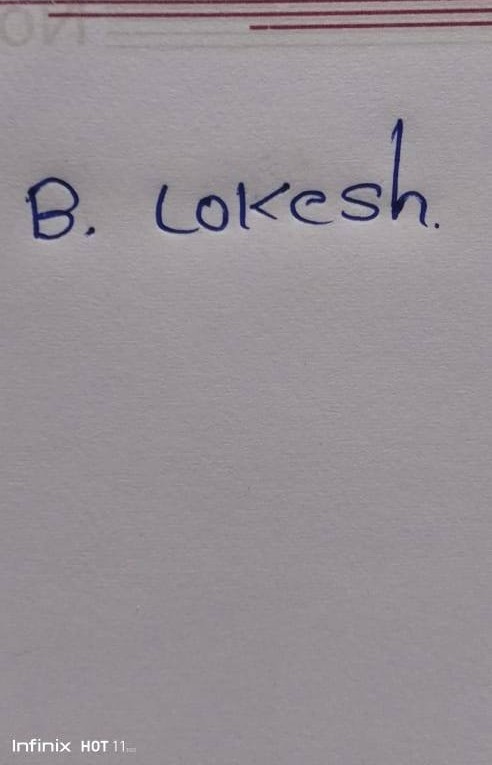 B. Lokesh.
Infinix HOT 11